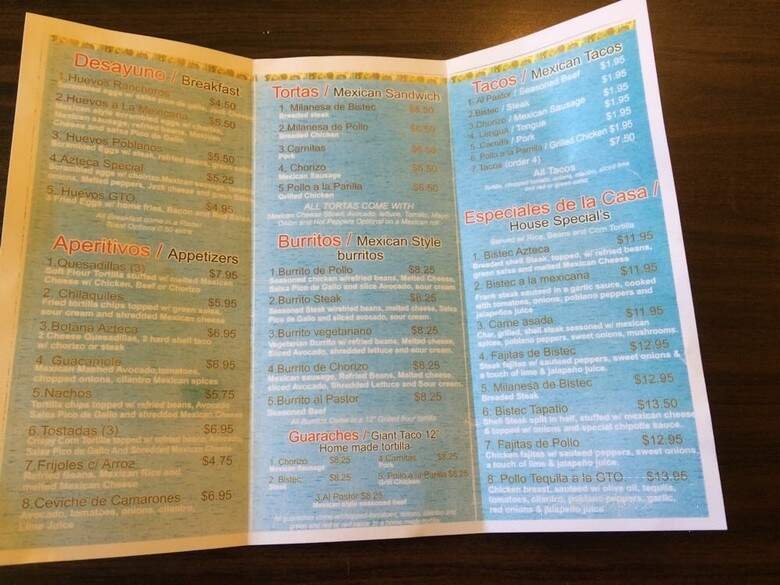 Desayuno / Breakfast
1.Huevos Rancheros $4.50
2.Huevos a La Mexicana $5.50
3. Huevos Poblanos $5.50
4.Azteca Special $5.25
5. Huevos GTO. $4.95
3 Fried Eggs w/ home fries, Bacon
Aperitivos / Appetizers
1.Quesadillas (3) $7.95
Soft Flour Tortilla stuffed w/ melted Mexican
Cheese w/ Chicken, Beef or Chorizo
2. Chilaquiles $5.95
Fried tortilla chips topped w/ green salsa,
sour cream and shredded Mexican cheese
3.Botana Azteca $6.95
2 Cheese Quesadillas, 2 hard shell taco
w/ chorizo or steak
4. Guacamole $6.95
Mexican Mashed Avocado, tomatoes,
chopped onions, cilantro Mexican spices
5.Nachos $5.75
Tortilla chips topped w/ refried beans,
Salsa Pico de Gallo and shredded Mexican Cheese
6.Tostadas (3) $6.95
Crispy Corn Tortilla topped w/
Salsa Pico de Gallo and
7.Frijoles c/ Arroz $4.75
8.Ceviche de Camarones $6.95
tomatoes, onions, cilantro,
Lime Juice
Tortas / Mexican Sandwich
1. Milanesa de Bistec $6.50
Breaded steak
2.Milanesa de Pollo $6.50
Breaded Chicken
3.Carnitas $6.50
Pork
4. Chorizo $6.50
Mexican Sausage
5.Pollo a la Parilla $6.50
Grilled Chicken
ALL TORTAS COME WITH
Mexican Cheese Sliced, Avocado, lettuce, Tomato, Mayo
Onion and Hot Peppers Optional on a Mexican roll
Burritos / Mexican Style
burritos
1.Burrito de Pollo $8.25
Seasoned chicken w/refried beans, Melted Cheese,
Salsa Pico de Gallo and slice Avocado, sour cream.
2.Burrito Steak $8.25
Seasoned Steak w/refried beans, melted cheese, Salsa
Pico de Gallo and sliced avocado, sour cream.
3.Burrito vegetariano $8.25
Vegetarian Burrito w/ refried beans, Melted cheese,
Sliced Avocado, shredded lettuce and sour cream.
4.Burrito de Chorizo $8.25
Mexican sausage, Refried Beans, Melted cheese
sliced Avocado, Shredded Lettuce and Sour cream.
5.Burrito al Pastor $8.25
Seasoned Beef
Guaraches / "Giant Taco 12"
Home made tortilla
1. Chorizo $8.25
4.Carnitas $8.25
2. Bistec $8.25
5. Pollo a la Parilla $8.25
3.Al Pastor $8.25
Mexican style seasoned beef
Tacos / Mexican Tacos
1. Al Pastor / Seasoned Beef $1.95
2.Bistec / Steak $1.95
3.Chorizo / Mexican Sausage $1.95
4. Lengua / Tongue $1.95
5. Carnita / Pork $1.95
6. Pollo a la Parrilla / Grilled Chicken $1.95
7. Tacos (order 4) $7.50
All Tacos
Especiales de la Casa /
House Special's
Served w/ Rice, Beans and Corn Tortilla
1. Bistec Azteca $11.95
Breaded shell Steak, topped, w/ refried beans,
green salsa and melted Mexican Cheese
2. Bistec a la mexicana $11.95
Frank steak cooked in a garlic sauce, cooked
with tomatoes, onions, poblano peppers and
jalapeños juice
3. Carne asada $11.95
Char grilled, shell steak seasoned w/ mexican
spices, poblano peppers, sweet onions, mushrooms.
4. Fajitas de Bistec $12.95
Steak fajitas w/ sauteed peppers, sweet onions &
a touch of lime & jalapeño juice
5. Milanesa de Bistec $12.95
Breaded Steak
6. Bistec Tapatio $13.50
Shell Steak split in half, stuffed w/ mexican cheese
& topped w/ onions and special chipotle sauce.
7. Fajitas de Pollo $12.95
Chicken fajitas w/ sauteed peppers, sweet onions
a touch of lime & jalapeño juice
8. Pollo Tequila a la GTO. $13.95
Chicken breast, sauteed w/ olive oil, tequila,
tomatoes, cilantro, poblano peppers, garlic,
red onions & jalapeño juice.